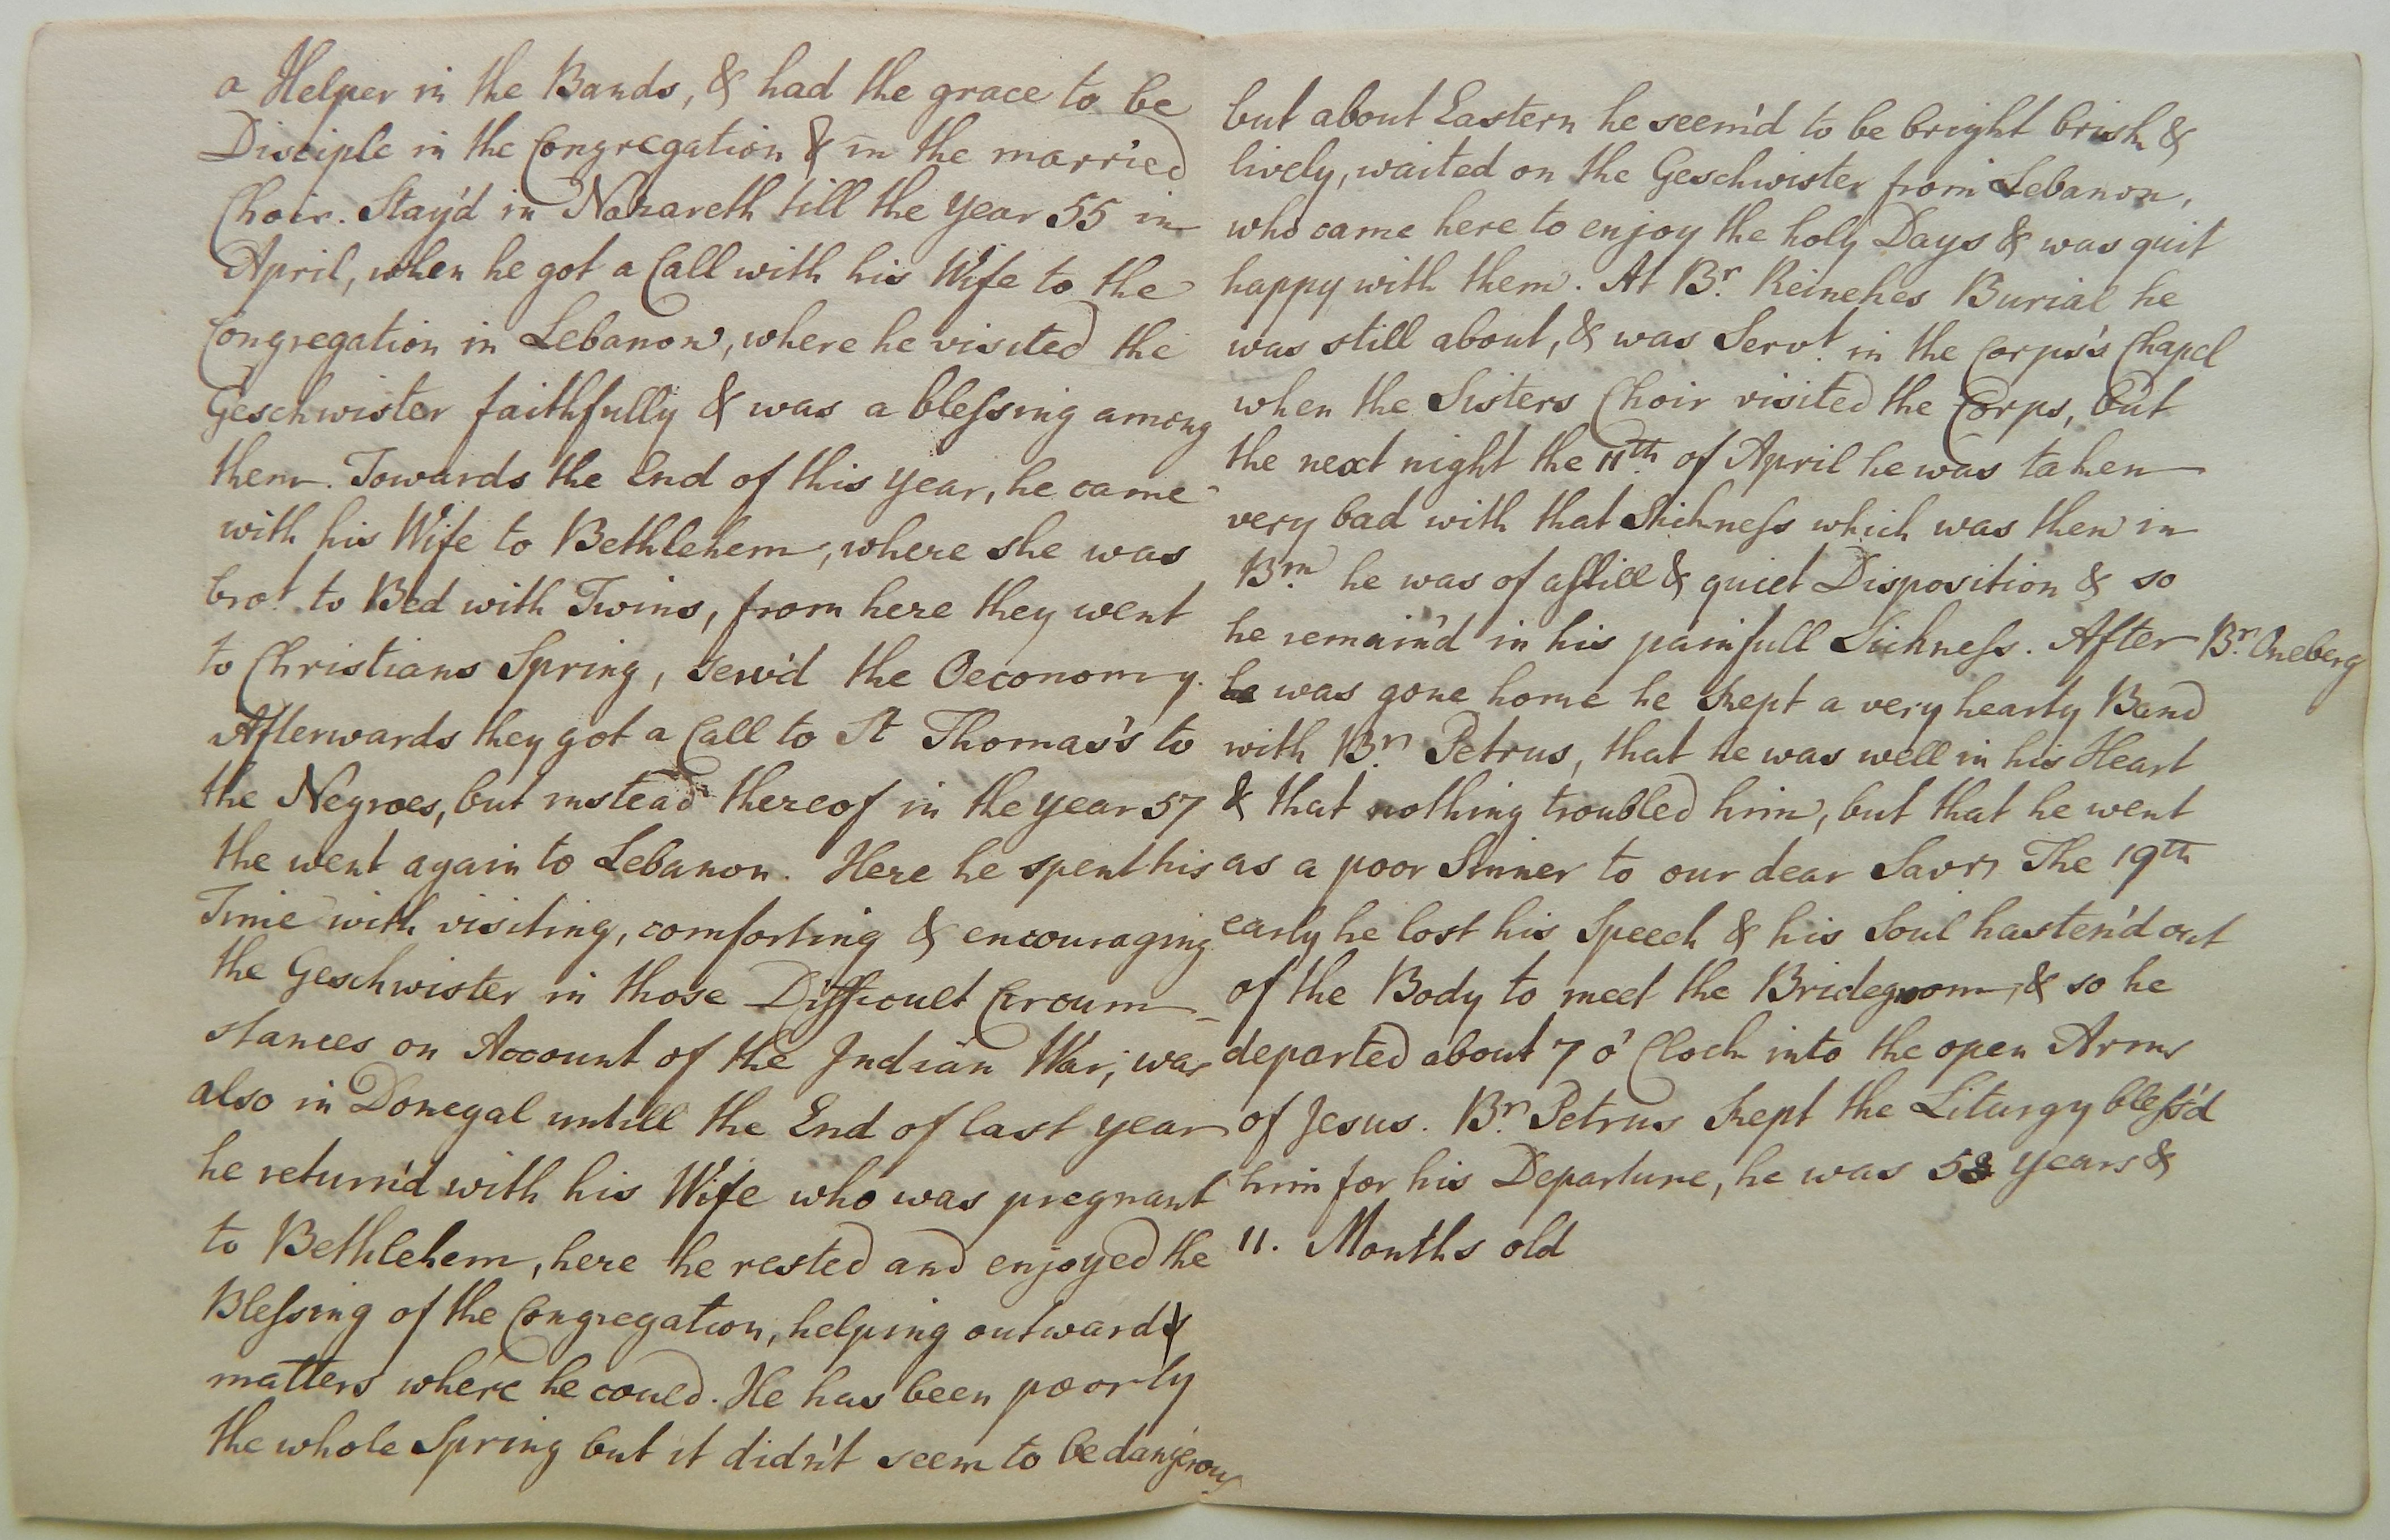 a Helper in the Bands, & had the grace to be
Disciple in the Congregation & in the married
Choir. Stay'd in Nazareth till the year 55 in
April, when he got a Call with his Wife to the
Congregation in Lebanon, where he visited the
Geschwister faithfully & was a blessing among
them. Towards the End of this year, he came
with his Wife to Bethlehem, where she was
brot. to Bed with Twins, from here they went
to Christians Spring, serv'd the Oeconomy.
Afterwards they got a Call to St Thomas's to
the Negroes, but instead thereof in the year 57
the went again to Lebanon. Here he spent his
Time with visiting, comforting & encouraging
the Geschwister in those Difficult Circum-
stances on Account of the Indian War, was
also in Donegal untill the End of last year
he return'd with his Wife who was pregnant
to Bethlehem, here he rested and enjoyed the
Blessing of the Congregation, helping outward
matters where he could. He has been poorly
the whole Spring but it didn't seem to be dangerous
but about Eastern he seem'd to be bright brisk &
lively, waited on the Geschwister from Lebanon,
who came here to enjoy the holy Days & was quit
happy with them. At Br. Reinekes Burial he
was still about, & was Servt. in the Corps's Chapel
when the Sisters Choir visited the Corps, but
the next night the 11th of April he was taken
very bad with that Sickness which was then in
Bm. he was of a still & quiet Disposition & so
he remain'd in his painfull Sickness. After Br. Oneberg
was gone home he kept a very hearty Band
with Br. Petrus, that he was well in his Heart
& that nothing troubled him, but that he went
as a poor Sinner to our dear Savr. The 19th
early he lost his Speech & his Soul hasten'd out
of the Body to meet the Bridegroom, & so he
departed about 7 o'Clock into the open Arms
of Jesus. Br. Petrus kept the Liturgy bless'd
him for his Departure, he was 58 years &
11. Months old